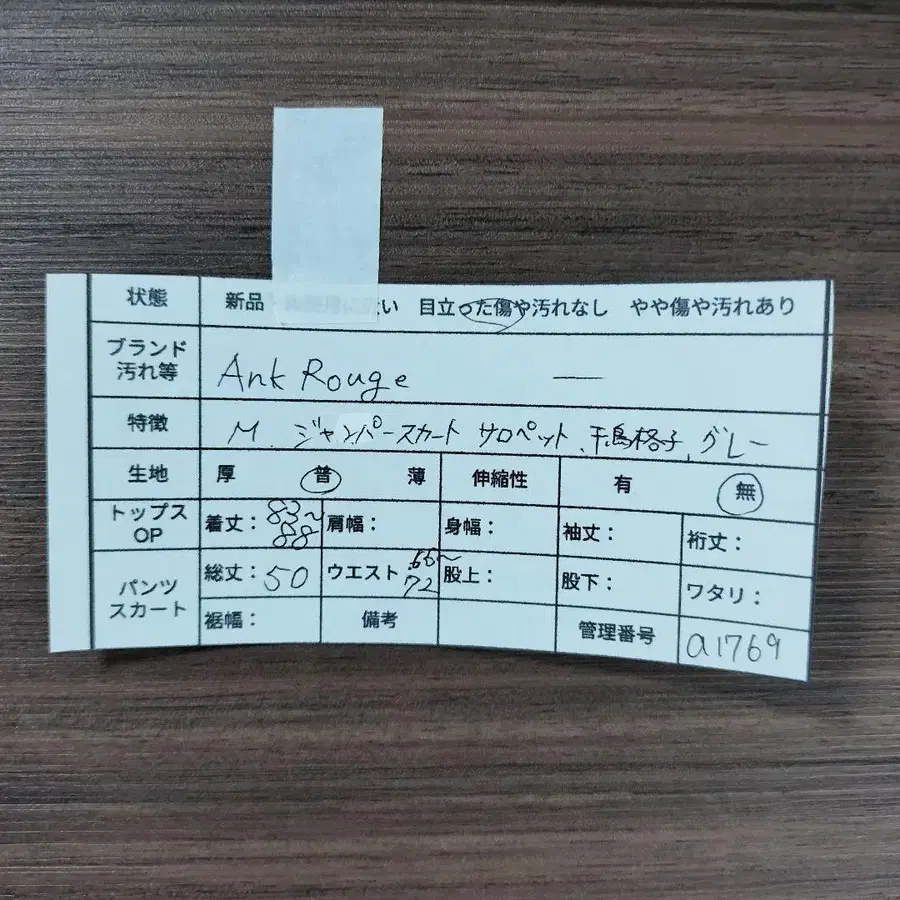 状態 新品 い 目立った傷や汚れなし やや傷や汚れあり
ブランド
汚れ等 Ank Rouge —
特徴 M. ジャンパースカート サロペット、千鳥格子、グレー
生地 厚 普 薄 伸縮性 有 無
トップス
OP 着丈: 83~
88 肩幅: 身幅: 袖丈: 裄丈:
パンツ
スカート 総丈: 50 ウエスト 66~
72 股上: 股下: ワタリ:
裾幅: 備考 管理番号 a1769